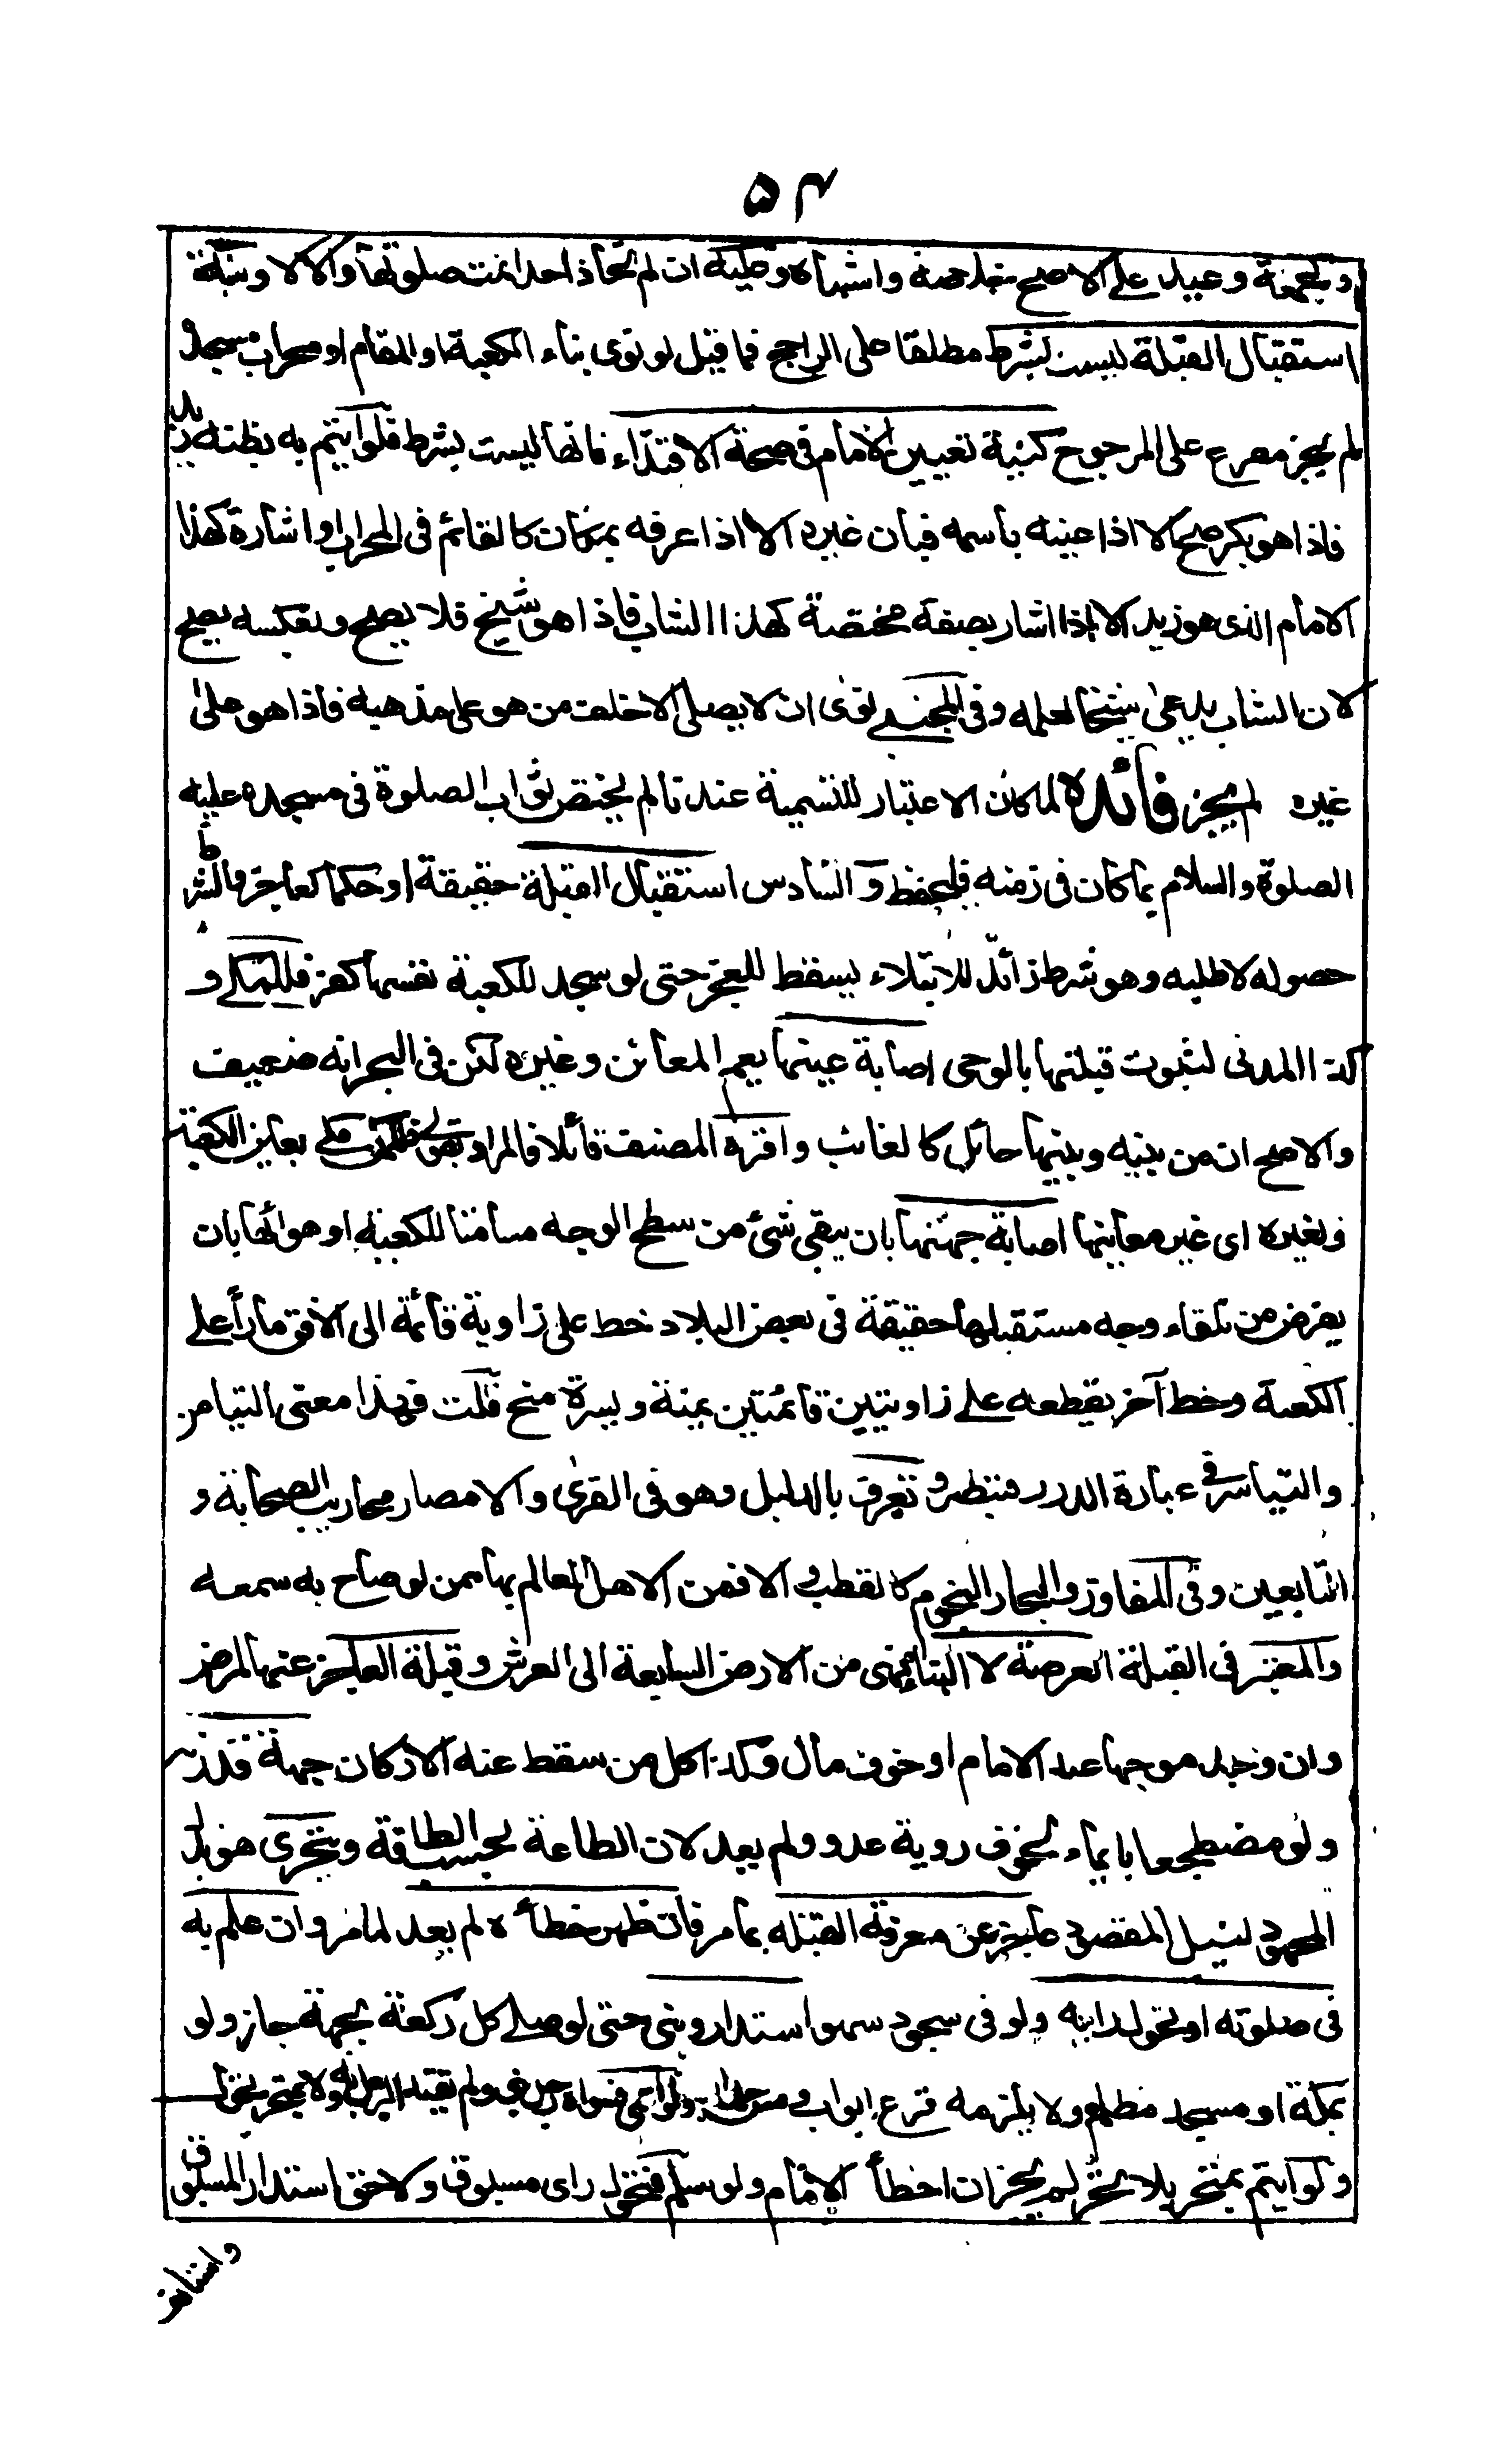 ۵۴
وجمعة وعيد على الاصح خلاصة واشباه وعليه ان لم تحاذ احدا تمت صلوتها والا لا ونية
استقبال القبلة ليست بشرط مطلقا على الراجح فما قيل لو نوى بناء الكعبة او المقام او محراب مسجده
لم يجز مفرع على المرجوح كنية تعيين الامام فى صحة الاقتداء فانها ليست بشرط فلو ايتم به يظنه زيد
فاذا هو بكر صح الا اذا عينه باسمه فبان غيره الا اذا عرفه بمكان كالقائم فى المحراب او اشارة كهذا
الامام الذى هو زيد الا اذا اشار بصفة مختصة كهذا الشاب فاذا هو شيخ فلا يصح وبعكسه يصح
لان الشاب يدعى شيخا لعلمه وفى المجتبے نوى ان لا يصلى الا خلف من هو على مذهبه فاذا هو على
غيره لم يجز فائده لما كان الاعتبار للتسمية عندنا لم يختص ثواب الصلوة فى مسجده عليه
الصلوة والسلام بما كان فى زمنه فليحفظ و السادس استقبال القبلة حقيقة او حكما كعاجز والشرط
حصوله لا طلبه وهو شرط زائد للابتلاء يسقط للعجز حتى لو سجد للكعبة نفسها كفر فللمكے و
كذا المدنى لثبوت قبلتها بالوحى اصابة عينها يعم المعائن وغيره لكن فى البحر انه ضعيف
والاصح ان من بينه وبينها حائل كالغائب واقره المصنف قائلا فالمراد بقولى فللمكے مكے يعاين الكعبة
ولغيره اى غير معاينها اصابة جهتها بان يبقى شئ من سطح الوجه مسامتا للكعبة او هوائها بان
يفرض من تلقاء وجه مستقبلها حقيقة فى بعض البلاد خط على زاوية قائمة الى الافق مارا على
الكعبة وخط آخر يقطعه على زاويتين قائمتين يمنة ويسرة منح قلت فهذا معنى التيامن
والتياسر فى عبارة الدرر فتبصر و تعرف بالدليل وهو فى القرى والامصار محاريب الصحابة و
التابعين وفى المفاوز والبحار النجوم كالقطب و الا فمن الاهل العالم بها ممن لو صاح به سمعه
والمعتبر فى القبلة العرصة لا البناء فهى من الارض السابعة الى العرش و قبلة العاجز عنها لمرض
وان وجد موجها عند الامام او خوف مال وكذا كل من سقط عنه الاركان جهة قدرته
ولو مضطجعا بايماء لخوف روية عدو ولم يعد لان الطاعة بحسب الطاقة ويتحرى هو بذل
المجهود لنيل المقصود عاجز عن معرفة القبلة بما مر فان ظهر خطأه لم يعد لما مر وان علم به
فى صلوته او تحول رايه ولو فى سجود سهوا استدار وبنى حتى لو صلے كل ركعة بجهة جاز ولو
بمكة او مسجد مظلم ولا يلزمه قرع ابواب و مس جدران ولو اعمى فسواه رجل بنى ولم يقتد الرجل به ولا بمتحر تحول
ولو ايتم بمتحر بلا تحر لم يجز ان اخطأ الامام ولو سلم فتحول راى مسبوق ولاحق استدار المسبوق
واستانف